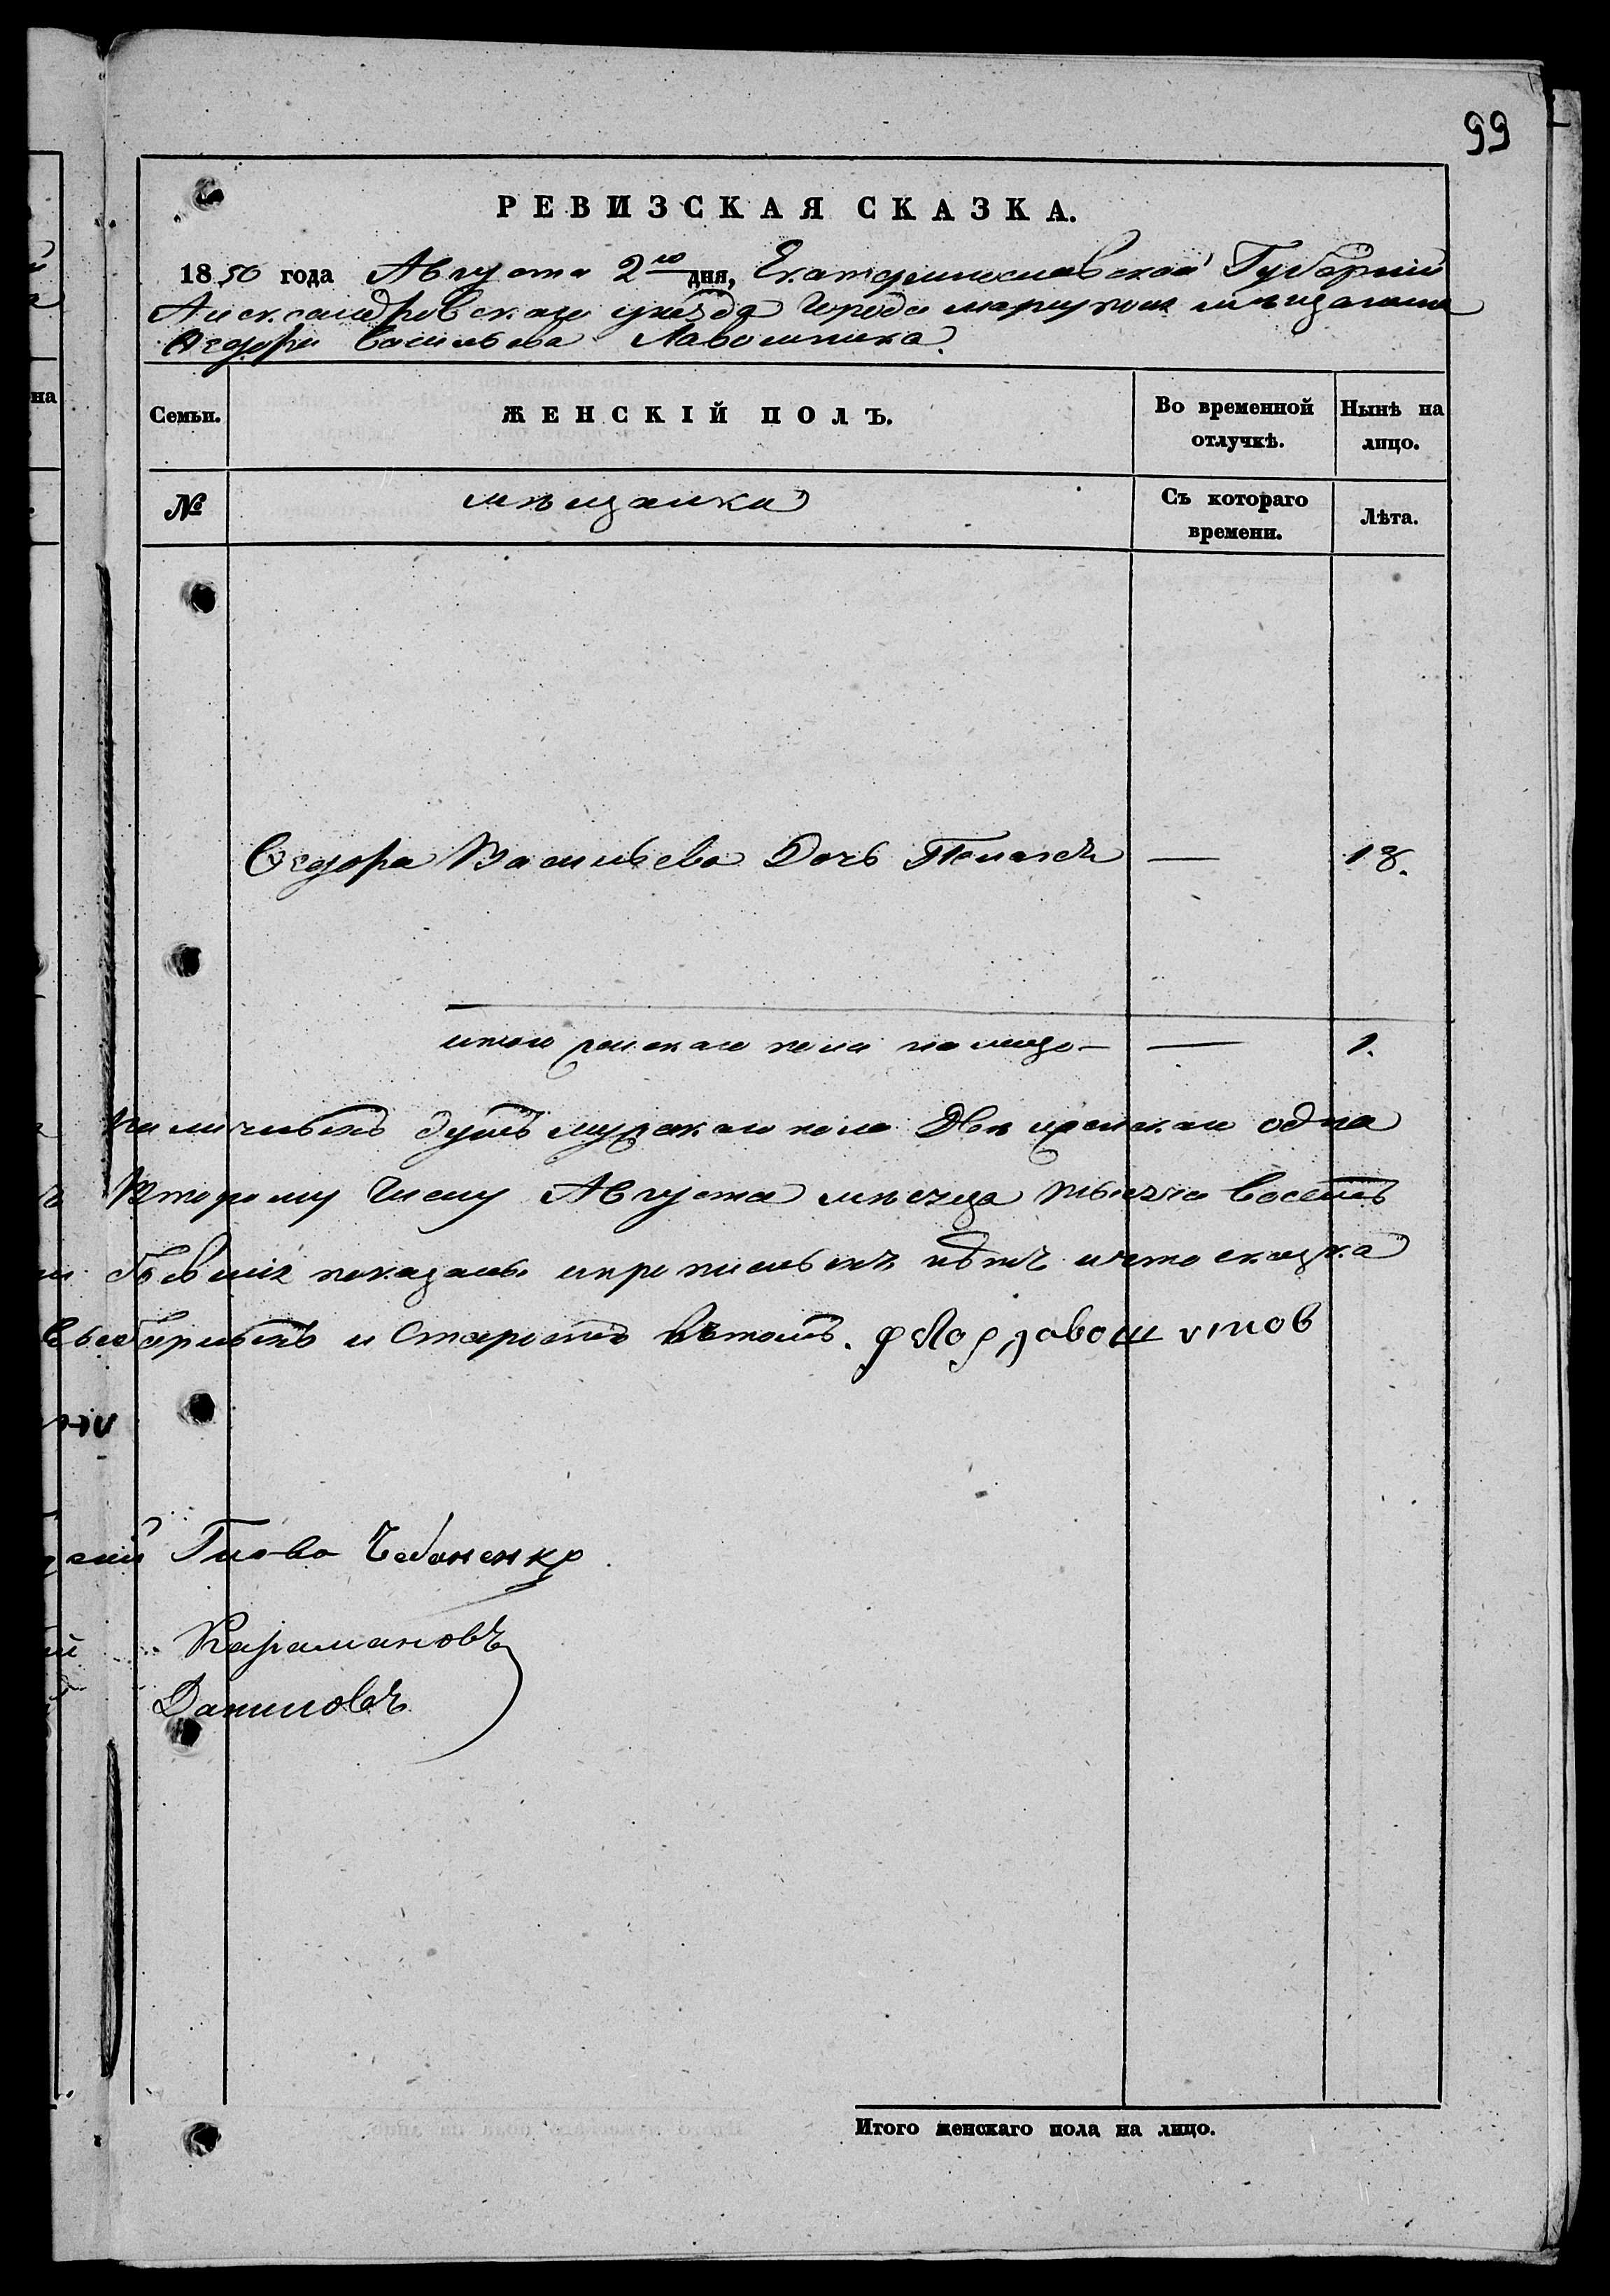 99
РЕВИЗСКАЯ СКАЗКА.
1850 года Августа 2го дня, Екатеринославской Губернии
Александровскаго уезда города мариуполя мѣщанина
Федора Васильева Лавошника.
Семьи.
ЖЕНСКІЙ ПОЛЪ.
Во временной отлучкѣ.
Нынѣ на лицо.
№
мѣщанка
Съ котораго времени.
Лѣта.
Федора Васильева Дочь Пелагея — 18.
итого женскаго пола на лицо — — 1.
наличныхъ душъ мужскаго пола Двѣ женскаго одна
Второму Числу Августа мѣсяца тысяча восемь
показаны и прописныхъ нѣтъ и что сказка
и Старостъ вѣтомъ.
Глава Чебаненко
Карамановъ
Даниловъ
Итого женскаго пола на лицо.